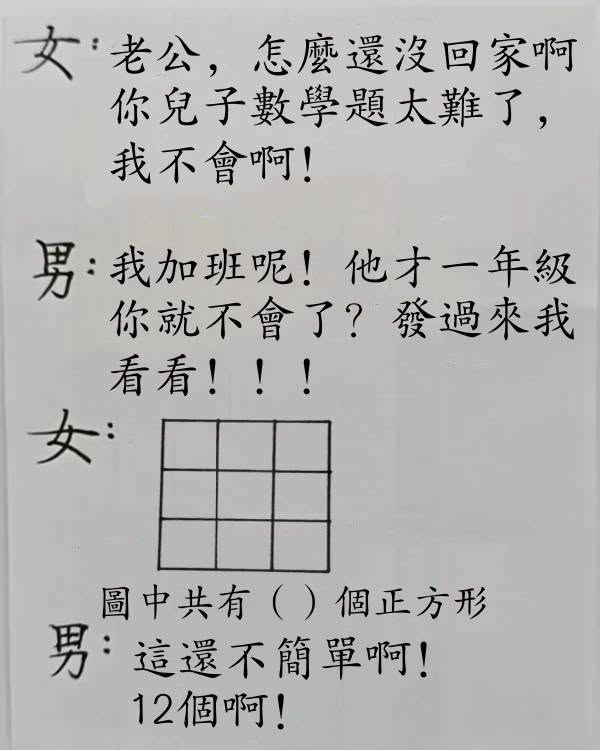 女：老公，怎麼還沒回家啊
你兒子數學題太難了，
我不會啊！
男：我加班呢！他才一年級
你就不會了？發過來我
看看！！！
女：
圖中共有（）個正方形
男：這還不簡單啊！
12個啊！